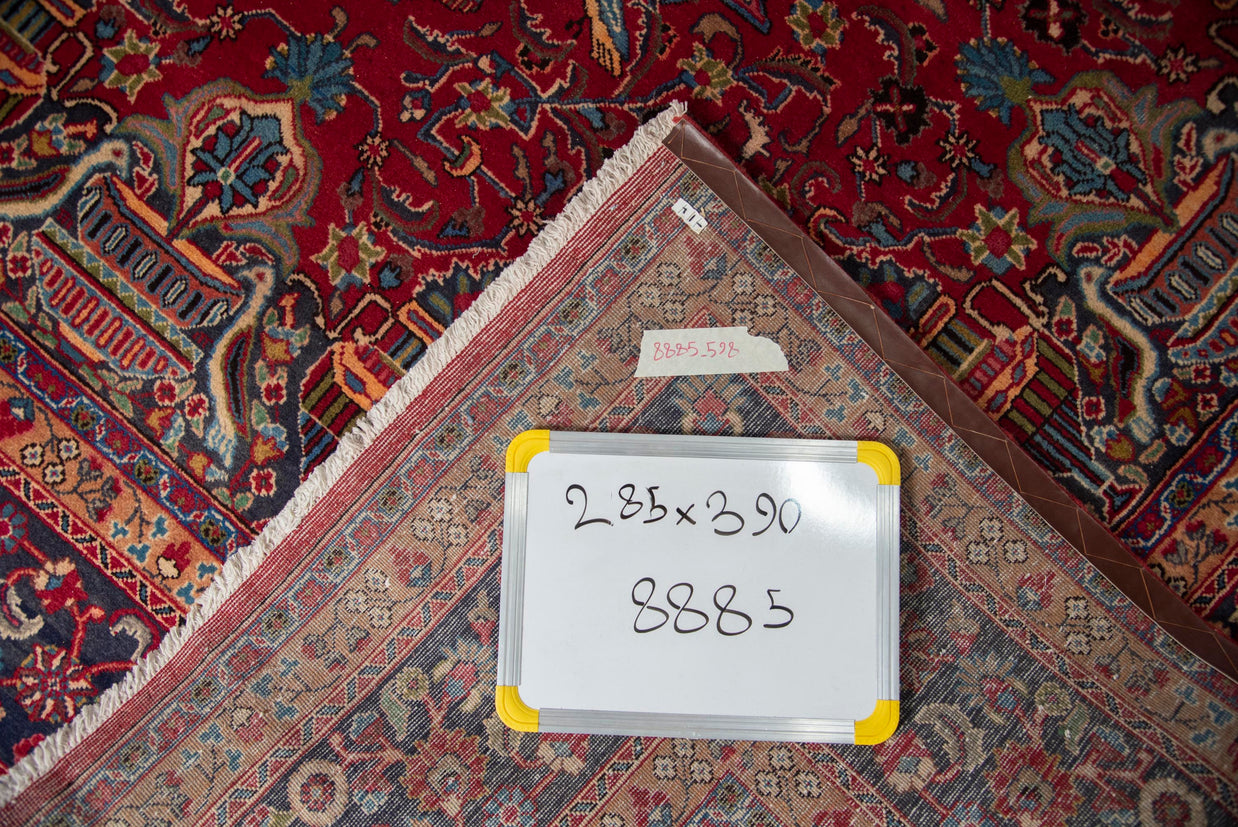 8885_598
2.85x390
8885